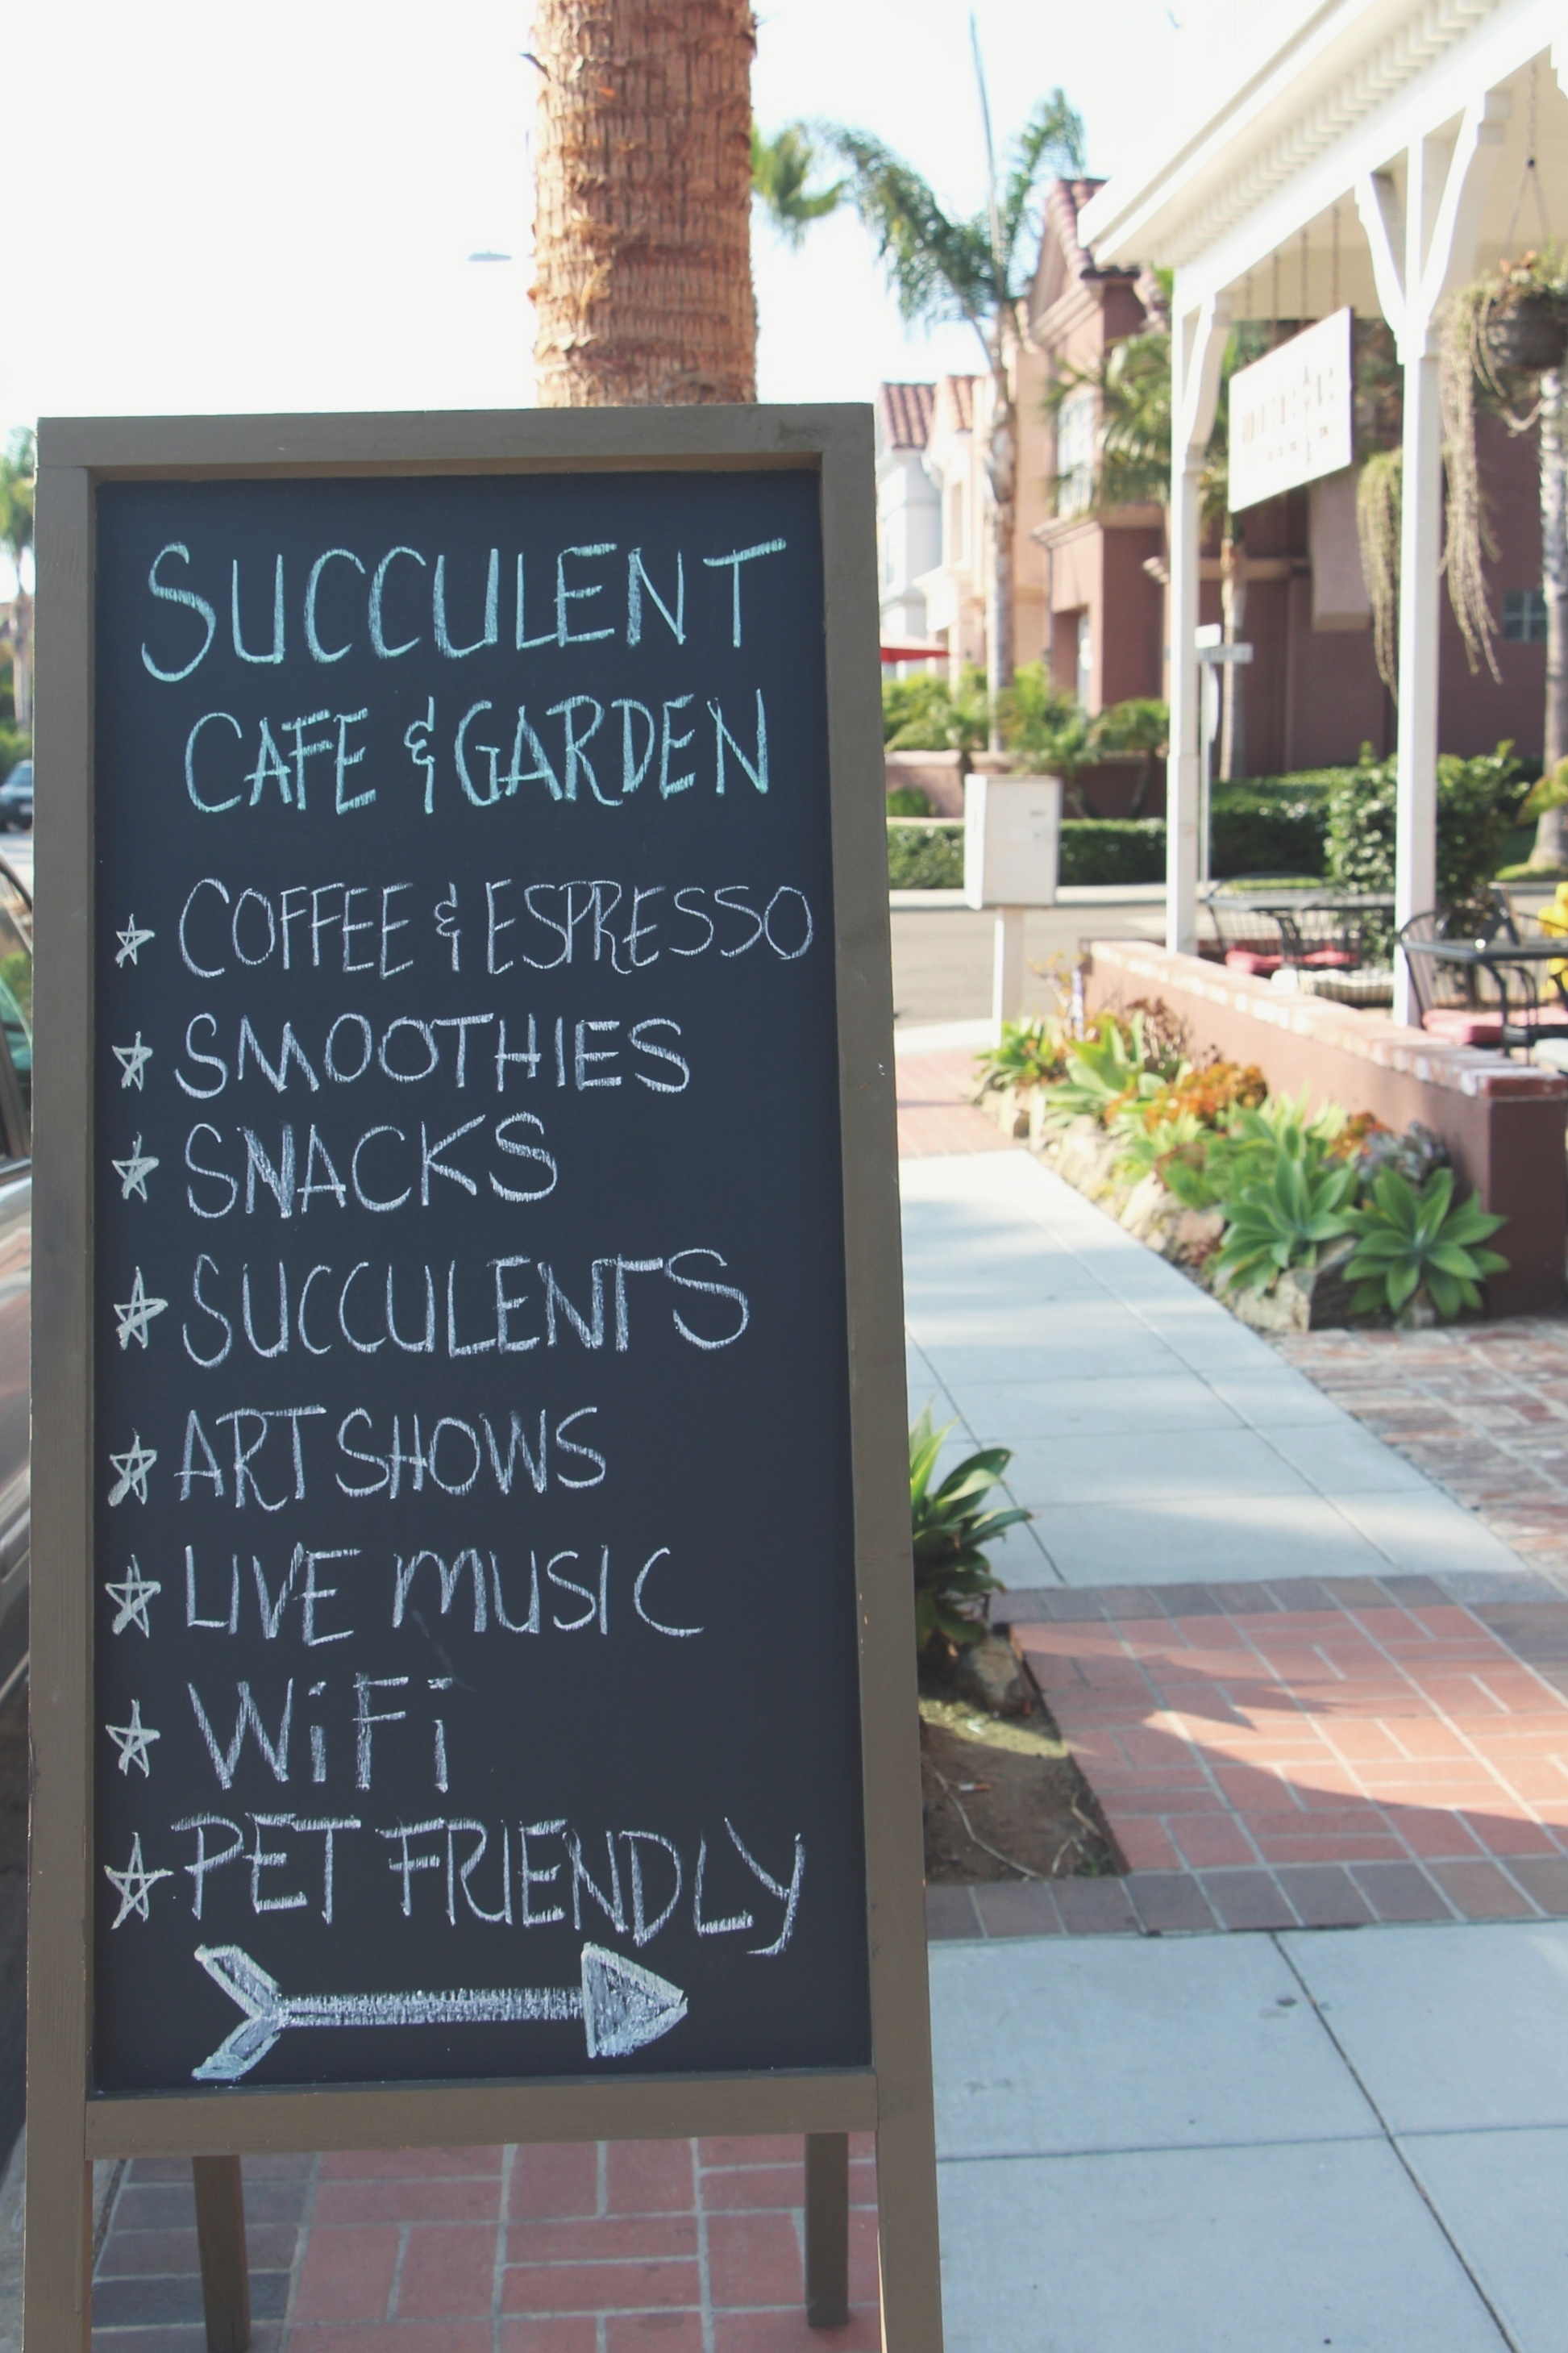 SUCCULENT
CAFE & GARDEN
COFFEE & ESPRESSO
SMOOTHIES
SNACKS
SUCCULENTS
ART SHOWS
LIVE MUSIC
WiFi
PET FRIENDLY